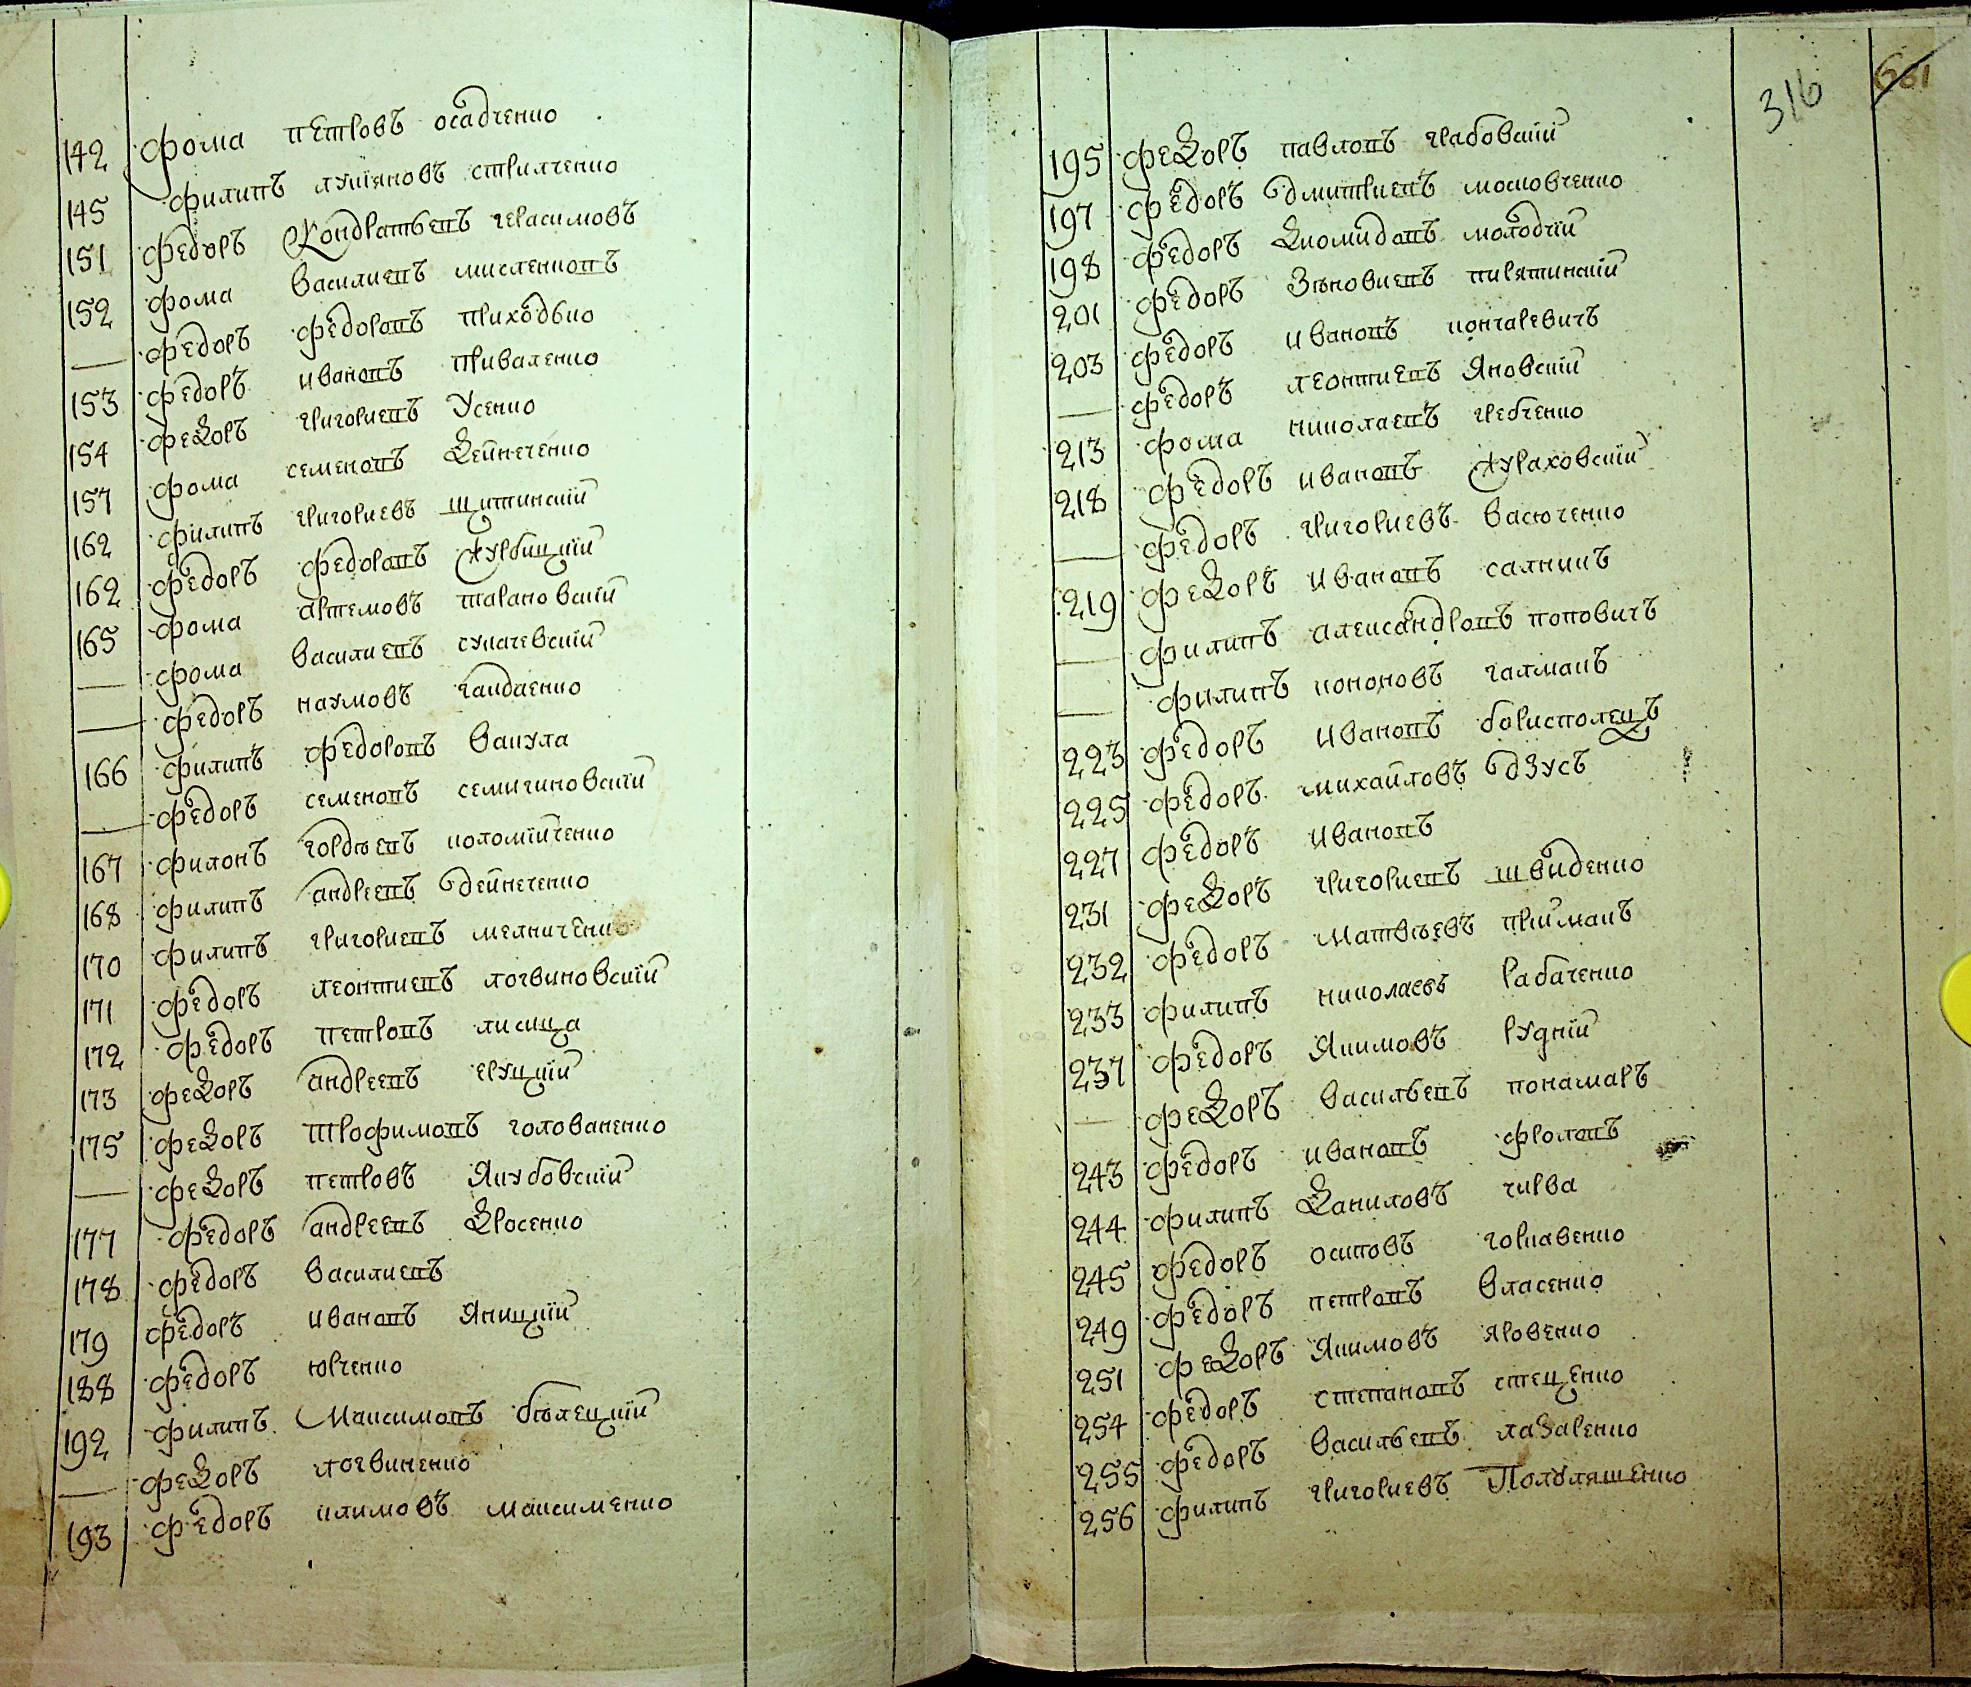 142 Фома Петровъ Осадченко
145 Филипъ Лукяновъ Стрилченко
151 Федоръ Кондратьевъ Герасимовъ
152 Фома Василиевъ Мисленковъ
— Федоръ Федоровъ Приходько
153 Федоръ Ивановъ Приваленко
154 Федоръ Григориевъ Усенко
157 Фома Семеновъ Дейнеченко
162 Филипъ Григориевъ Щитинскїй
162 Федоръ Федоровъ Журбицкїй
165 Фома Артемовъ Тарановскїй
— Фома Василиевъ Сукачевскїй
— Федоръ Наумовъ Гайдаенко
166 Филипъ Федоровъ Вакула
— Федоръ Семеновъ Семигиновскїй
167 Филонъ Гордѣевъ Коломїйченко
168 Филипъ Андреевъ Дейнеченко
170 Филипъ Григориевъ Мелниченко
171 Федоръ Леонтиевъ Логвиновскїй
172 Федоръ Петровъ Лисица
173 Федоръ Андреевъ Еруцкїй
175 Федоръ Трофимовъ Голованенко
— Федоръ Петровъ Якубовскїй
177 Федоръ Андреевъ Дросенко
178 Федоръ Василиевъ
179 Федоръ Ивановъ Яницкїй
188 Федоръ Юрченко
192 Филипъ Максимовъ Бѣлецкїй
— Федоръ Логвиненко
193 Федоръ Климовъ Максименко
316
661
195 Федоръ Павловъ Грабовскїй
197 Федоръ Дмитриевъ Московченко
198 Федоръ Диомидовъ Молодїй
201 Федоръ Зѣновиевъ Пирятинскїй
203 Федоръ Ивановъ Кончаревичъ
— Федоръ Леонтиевъ Яновскїй
213 Фома Николаевъ Гребченко
218 Федоръ Ивановъ Жураховскїй
— Федоръ Григориевъ Васюченко
219 Федоръ Ивановъ Салникъ
— Филипъ Александровъ Поповичъ
— Филипъ Кононовъ Чалмакъ
223 Федоръ Ивановъ Бориспoлецъ
225 Федоръ Михайловъ Дзусъ
227 Федоръ Ивановъ
231 Федоръ Григориевъ Швиденко
232 Федоръ Матвѣевъ Прїймакъ
233 Филипъ Николаевъ Рабаченко
237 Федоръ Якимовъ Рудпїй
— Федоръ Васильевъ Понамаръ
243 Федоръ Ивановъ Фроловъ
244 Филипъ Даниловъ Чирва
245 Федоръ Осиповъ Горкавенко
249 Федоръ Петровъ Власенко
251 Федоръ Якимовъ Яровенко
254 Федоръ Степановъ Стеценко
255 Федоръ Васильевъ Лазаренко
256 Филипъ Григориевъ Полуляшенко